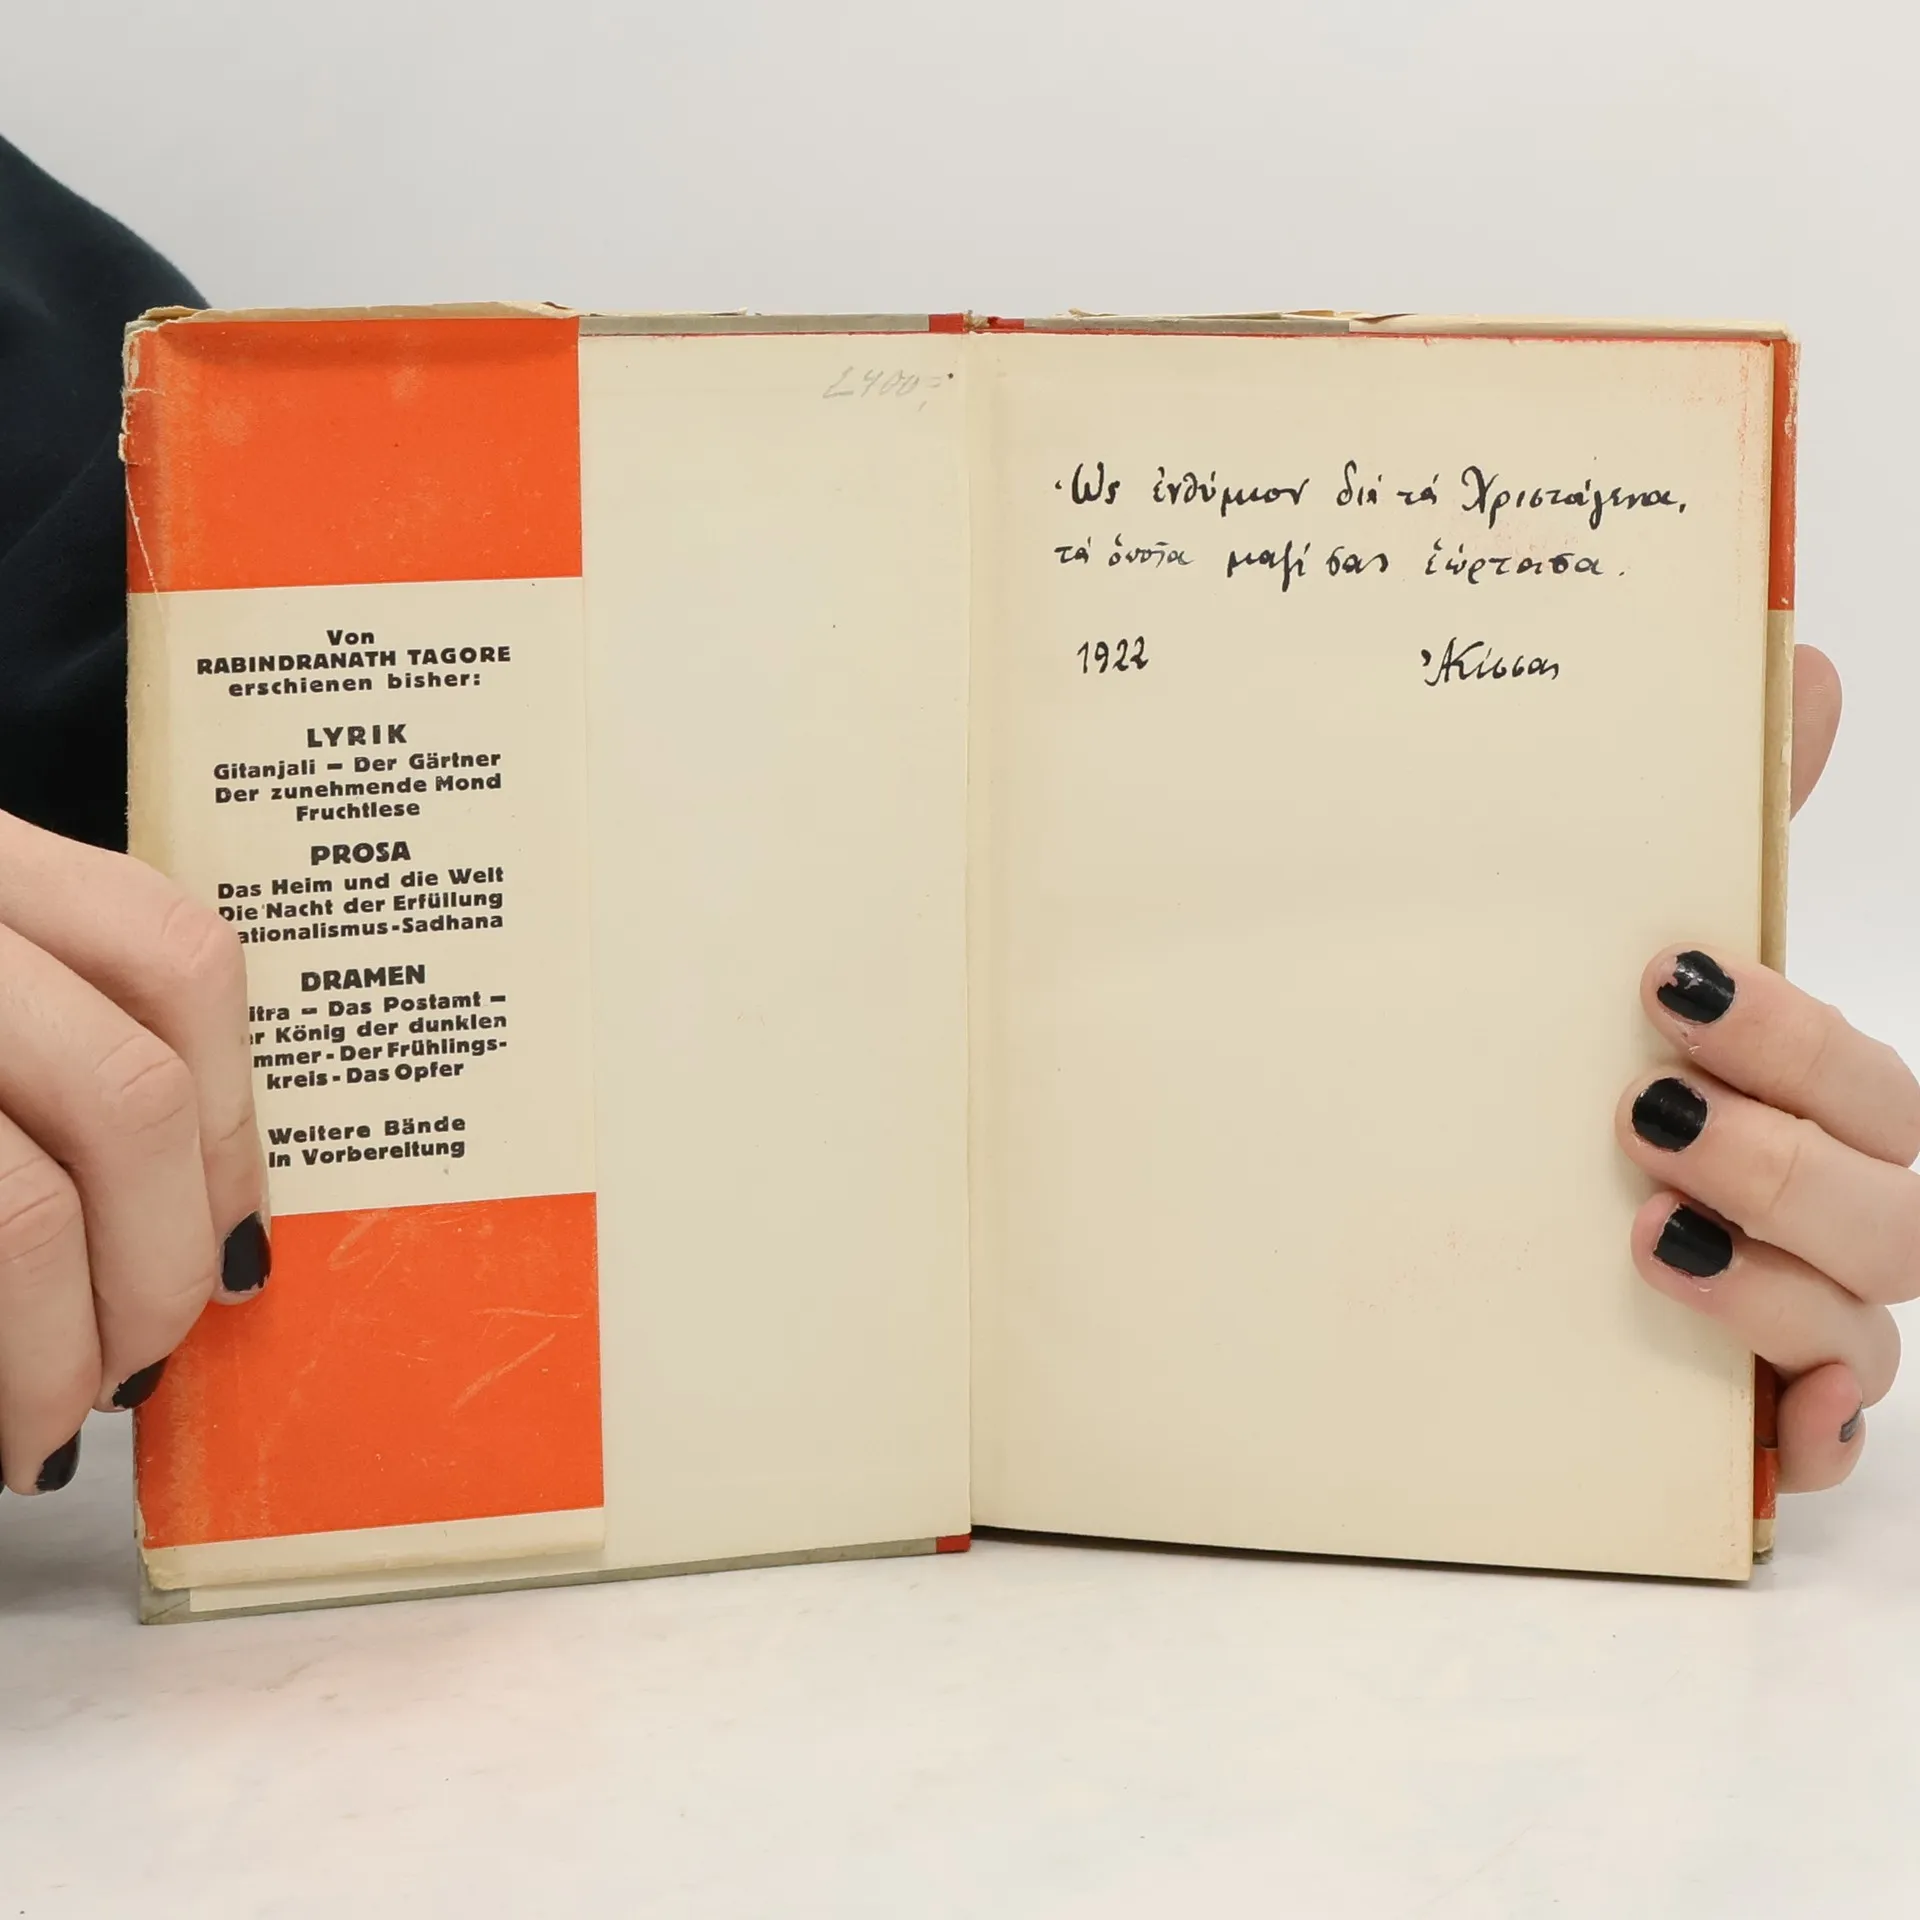 Von
RABINDRANATH TAGORE
erschienen bisher:
LYRIK
Gitanjali – Der Gärtner
Der zunehmende Mond
Fruchtlese
PROSA
Das Heim und die Welt
Die Nacht der Erfüllung
ationalismus-Sadhana
DRAMEN
itra – Das Postamt –
er König der dunklen
mmer - Der Frühlings-
kreis - Das Opfer
Weitere Bände
in Vorbereitung
Ὡς ἐνθύμιον διά τά Χριστούγενα,
τά ὁποῖα μαζί σας ἑώρτασα.
1922